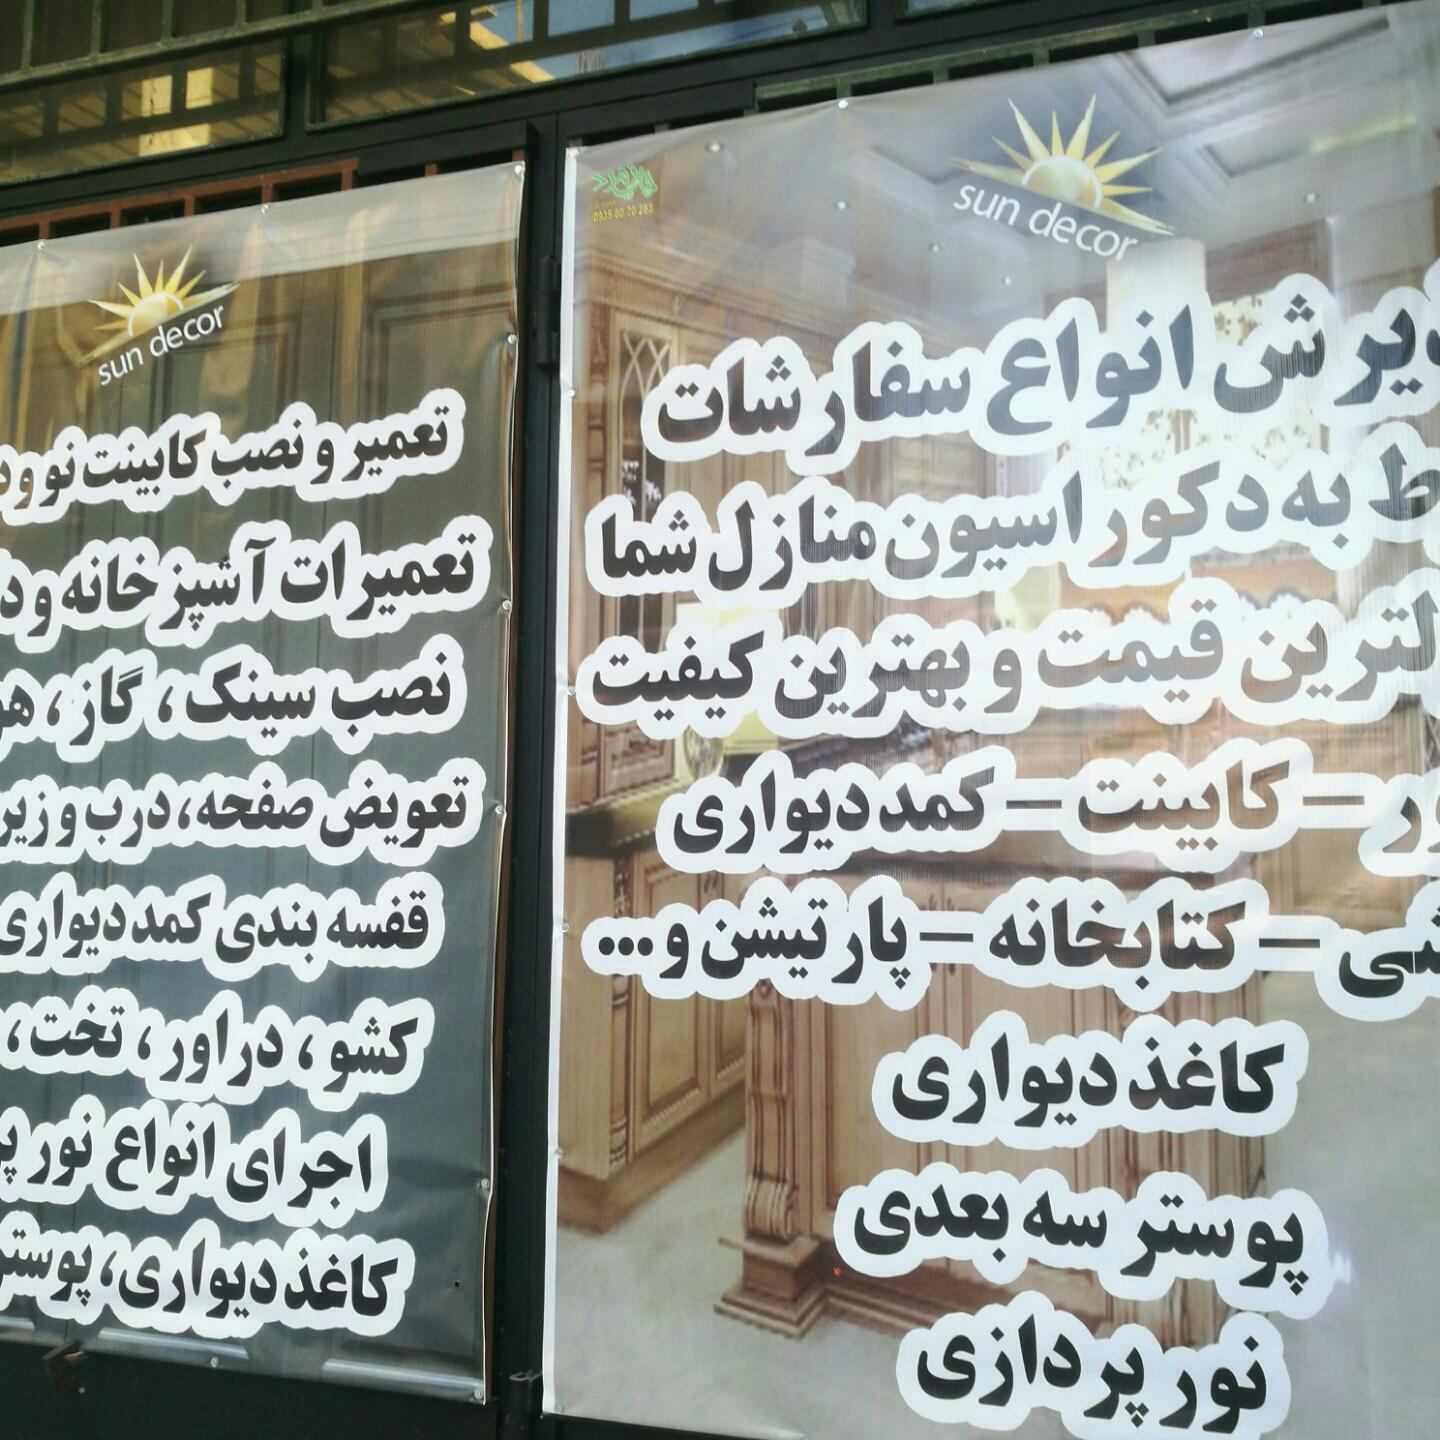 sun decor
یرش انواع سفارشات
ط به دکوراسیون منازل شما
لترین قیمت و بهترین کیفیت
ور – کابینت – کمد دیواری
شی – کتابخانه – پارتیشن و...
کاغذ دیواری
پوستر سه بعدی
نور پردازی
0935 80 70 283
sun decor
تعمیر و نصب کابینت نو و د
تعمیرات آشپزخانه و د
نصب سینک، گاز، هو
تعویض صفحه، درب و زیر
قفسه بندی کمد دیواری
کشو، دراور، تخت،
اجرای انواع نور پر
کاغذ دیواری، پوستر